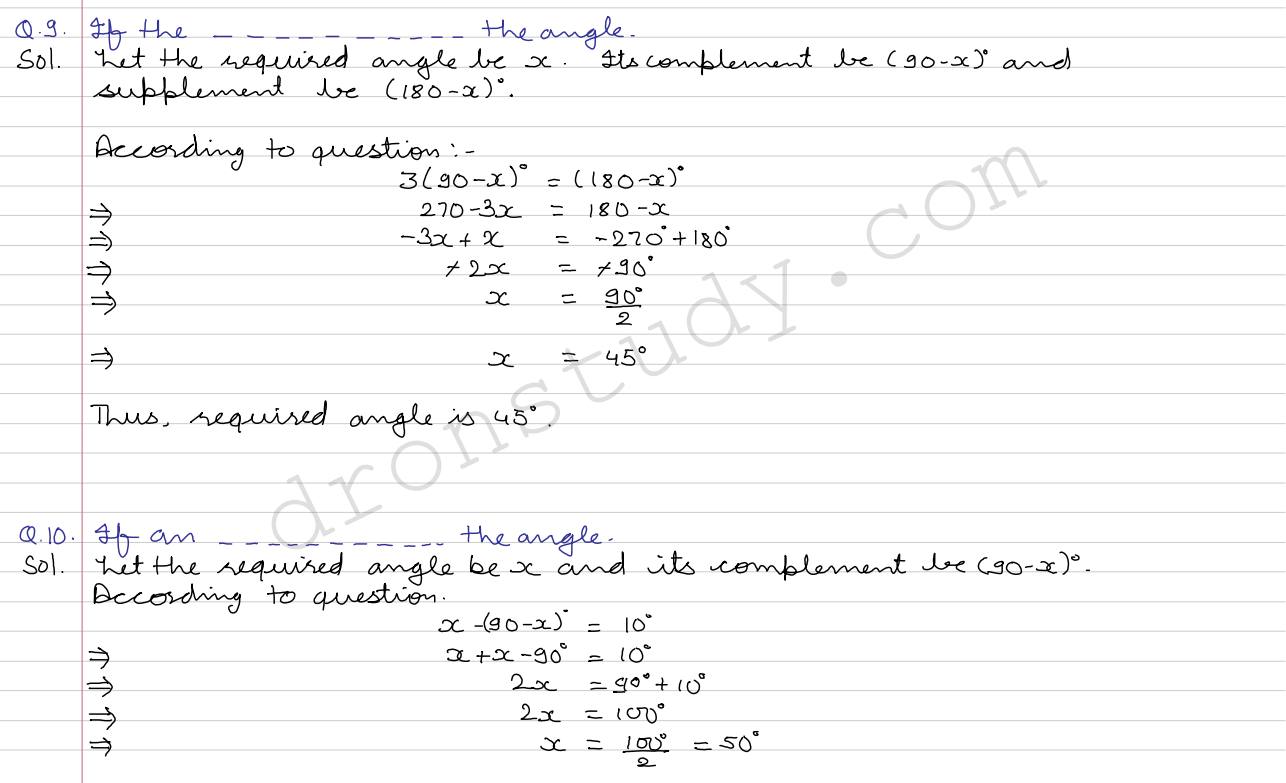 Q.9. If the _ _ _ _ _ _ _ _ _ _ _ the angle.
Sol. Let the required angle be x. Its complement be (90-x)° and
supplement be (180-x)°.
According to question:-
3(90-x)° = (180-x)°
⇒ 270-3x = 180-x
⇒ -3x + x = -270° + 180°
⇒ -2x = -90°
⇒ x = 90°/2
⇒ x = 45°
Thus, required angle is 45°.
Q.10. If an _ _ _ _ _ _ _ _ _ _ _ the angle.
Sol. Let the required angle be x and its complement be (90-x)°.
According to question.
x-(90-x)° = 10°
⇒ x+x-90° = 10°
⇒ 2x = 90° + 10°
⇒ 2x = 100°
⇒ x = 100°/2 = 50°
dronstudy.com